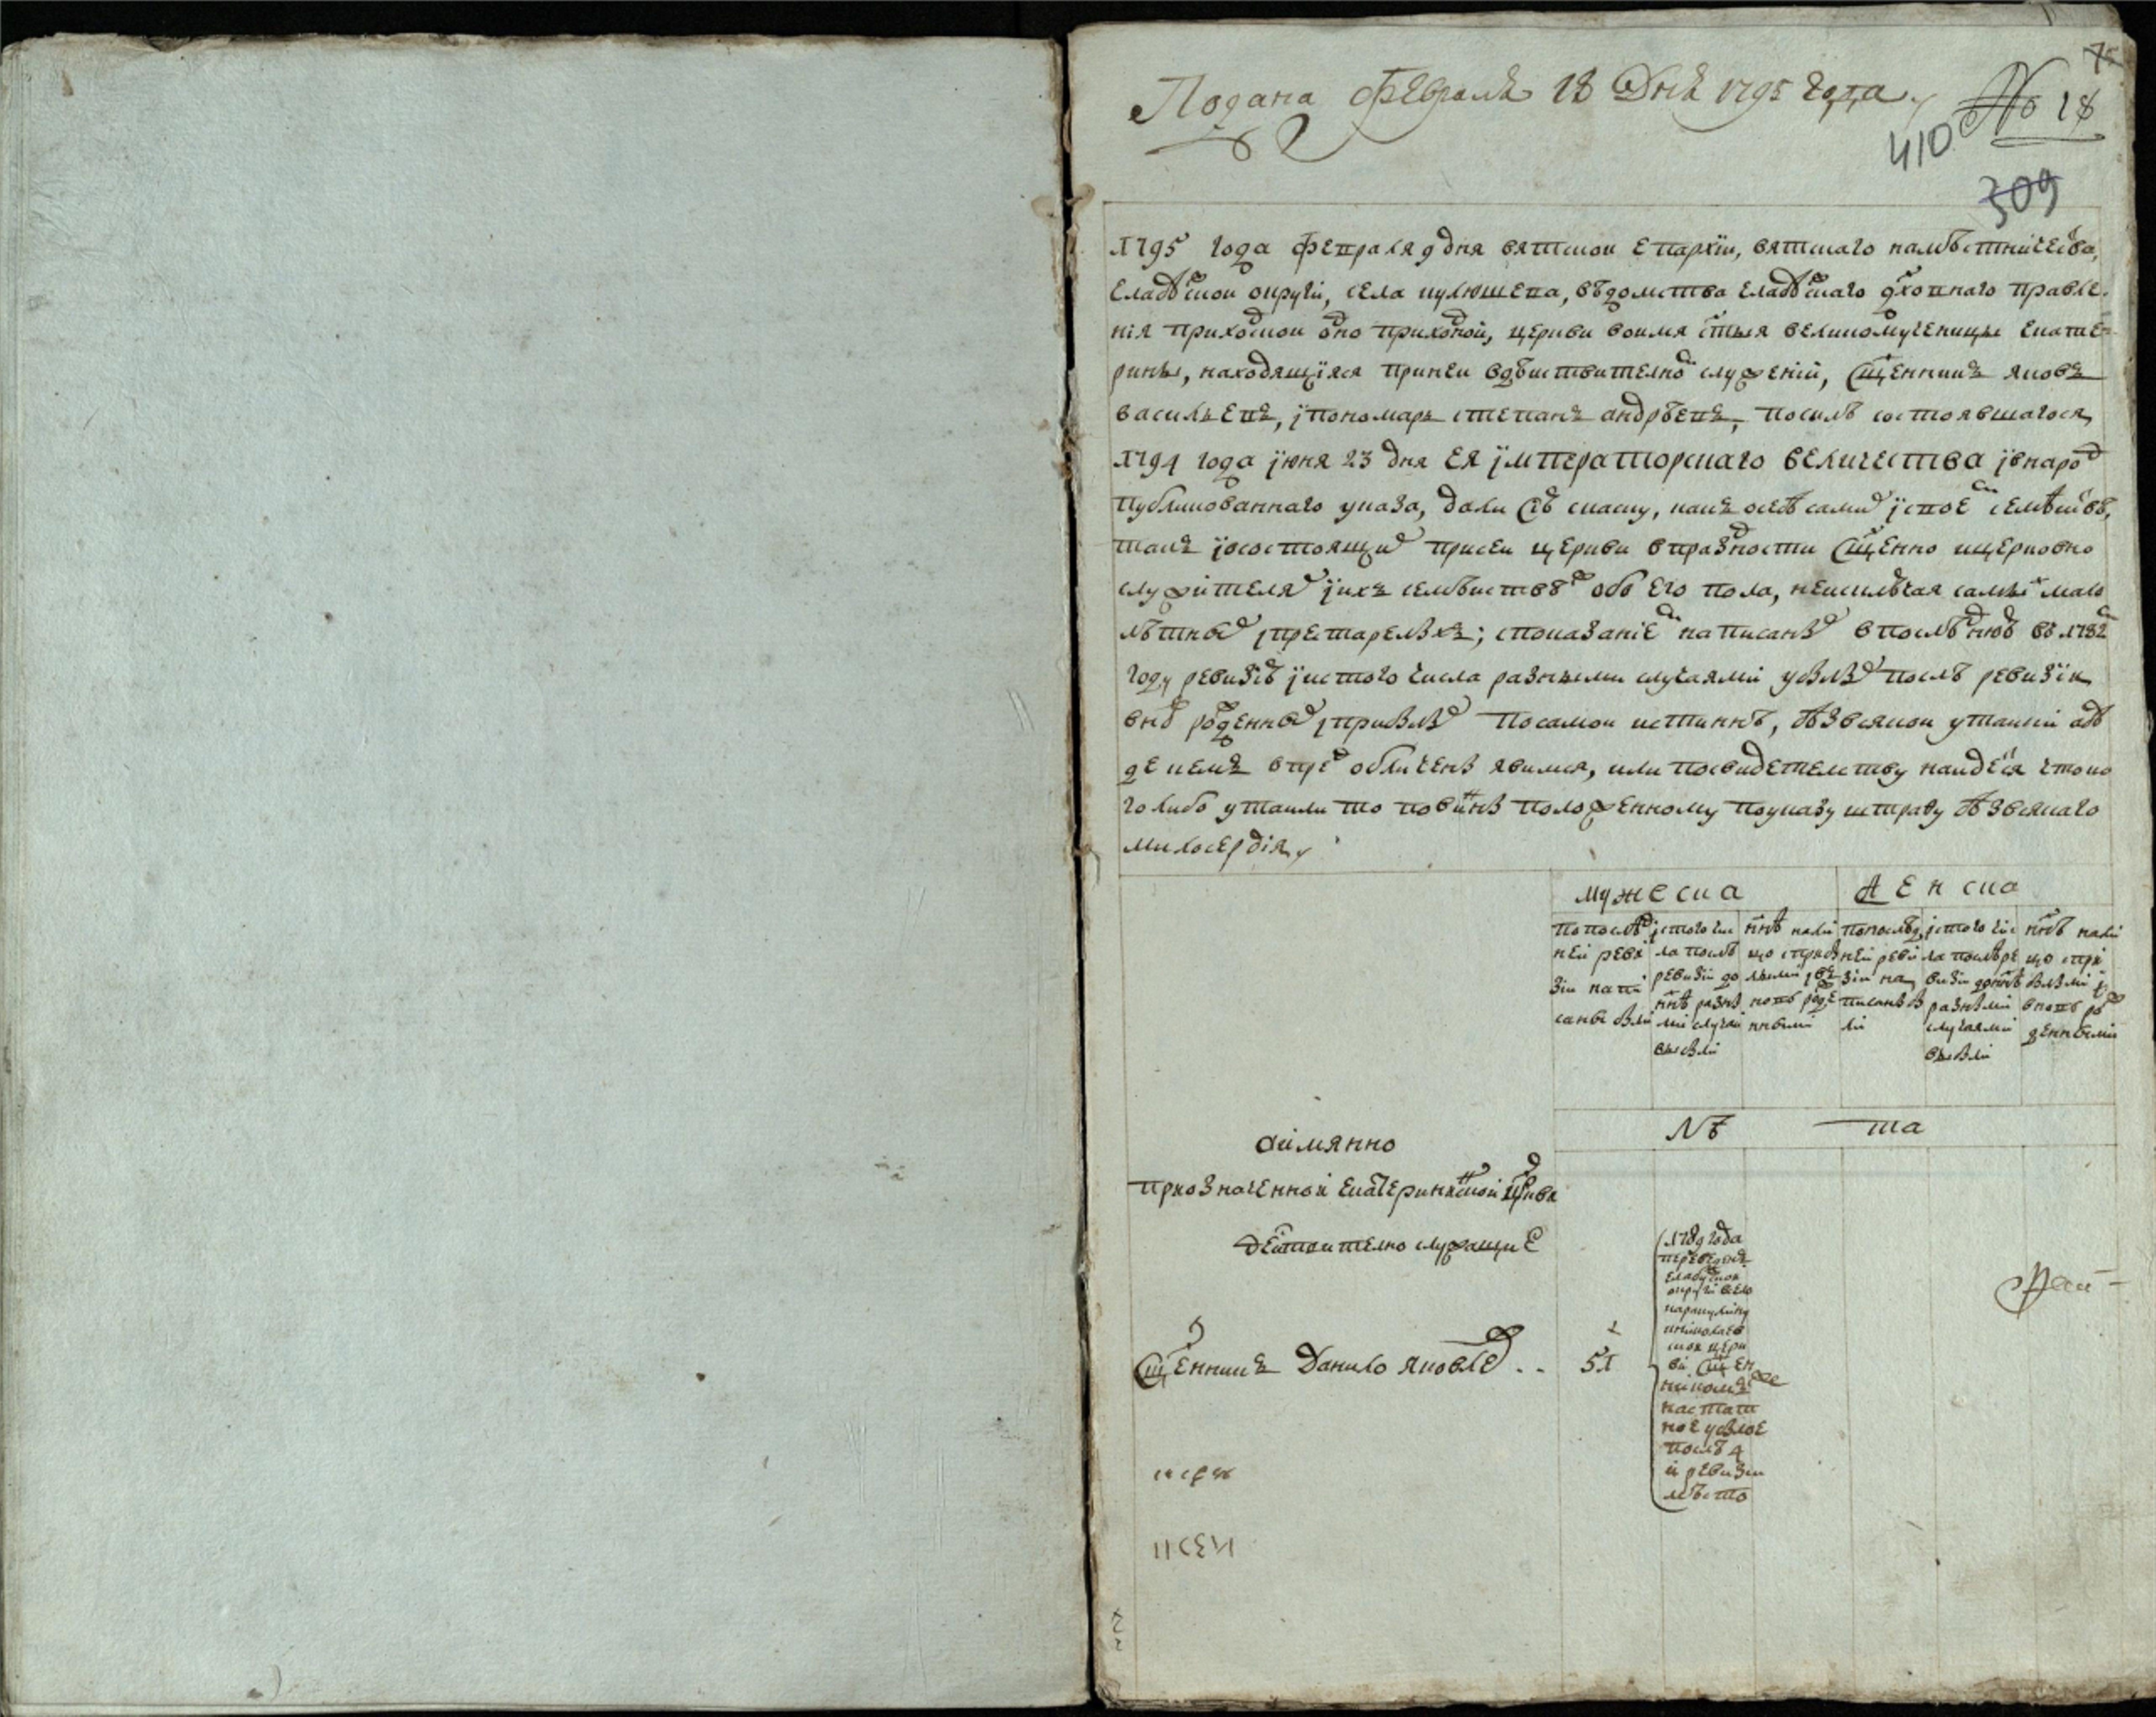 Подана февраля 18 дня 1795 года
75
№ 18
410
309
1795 года февраля 9 дня вятской епархии, вятскаго намѣстничества,
елабуской округи, села кулюшева, вѣдомства елабускаго духовнаго правле-
нія приходской одноприходной, церкви воимя стыя великомученицы екате-
рины, находящіяся при ней вдѣиствителной служеніи, сщенникъ яковъ
васильевъ, їпономарь степанъ андрѣевъ, посилѣ состоявшагося
1794 года їюня 23 дня ея їмператорскаго величества ївнарод
публикованнаго указа, дали сїю скаску, какъ осебѣ самих їсвоем семѣйствѣ,
такъ їосостоящих присей церкви впраздности сщенно ицерковно
служителях їихъ семѣиствах обоего пола, неисключая самых мало
лѣтных їпрестарелыхъ; споказаніем написаных впослѣднюю въ 1782м
году ревизію їистого числа разными случаями убылых послѣ ревизїи
вновь рожденных їприбылых посамой истиннѣ, безвсякой утайки абу
де чемъ впред обличены явимся, или посвидетелству найдется чтоко
голибо утаили то повинны положенному поуказу штрафу безвсякаго
милосердія
мужеска
женска
попослед
ней реви
зіи напи
саны были
їстого чис
ла послѣ
ревизіи до
ннѣ разны
ми случаи
выбыли
ннѣ нали
цо сприбы
лыми їв
новь рожде
нными
попослед
ней реви
зіи на
писаны бы
ли
їстого чис
ла послѣ ре
визіи доннѣ
разными
случаями
выбыли
ннѣ нали
цо спри
былыми ї
вновь ро
жденными
лѣ
та
аимянно
приозначенной екатерининской цркви
дейстително служащие
1789 года
переведенъ
елабуской
округи село
каракулино
книколаев
ской церк
ви сщен
никомъ
настат
ное убылое
послѣ 4
й ревизіи
мѣсто
сщенникъ данило яковлев . .
51